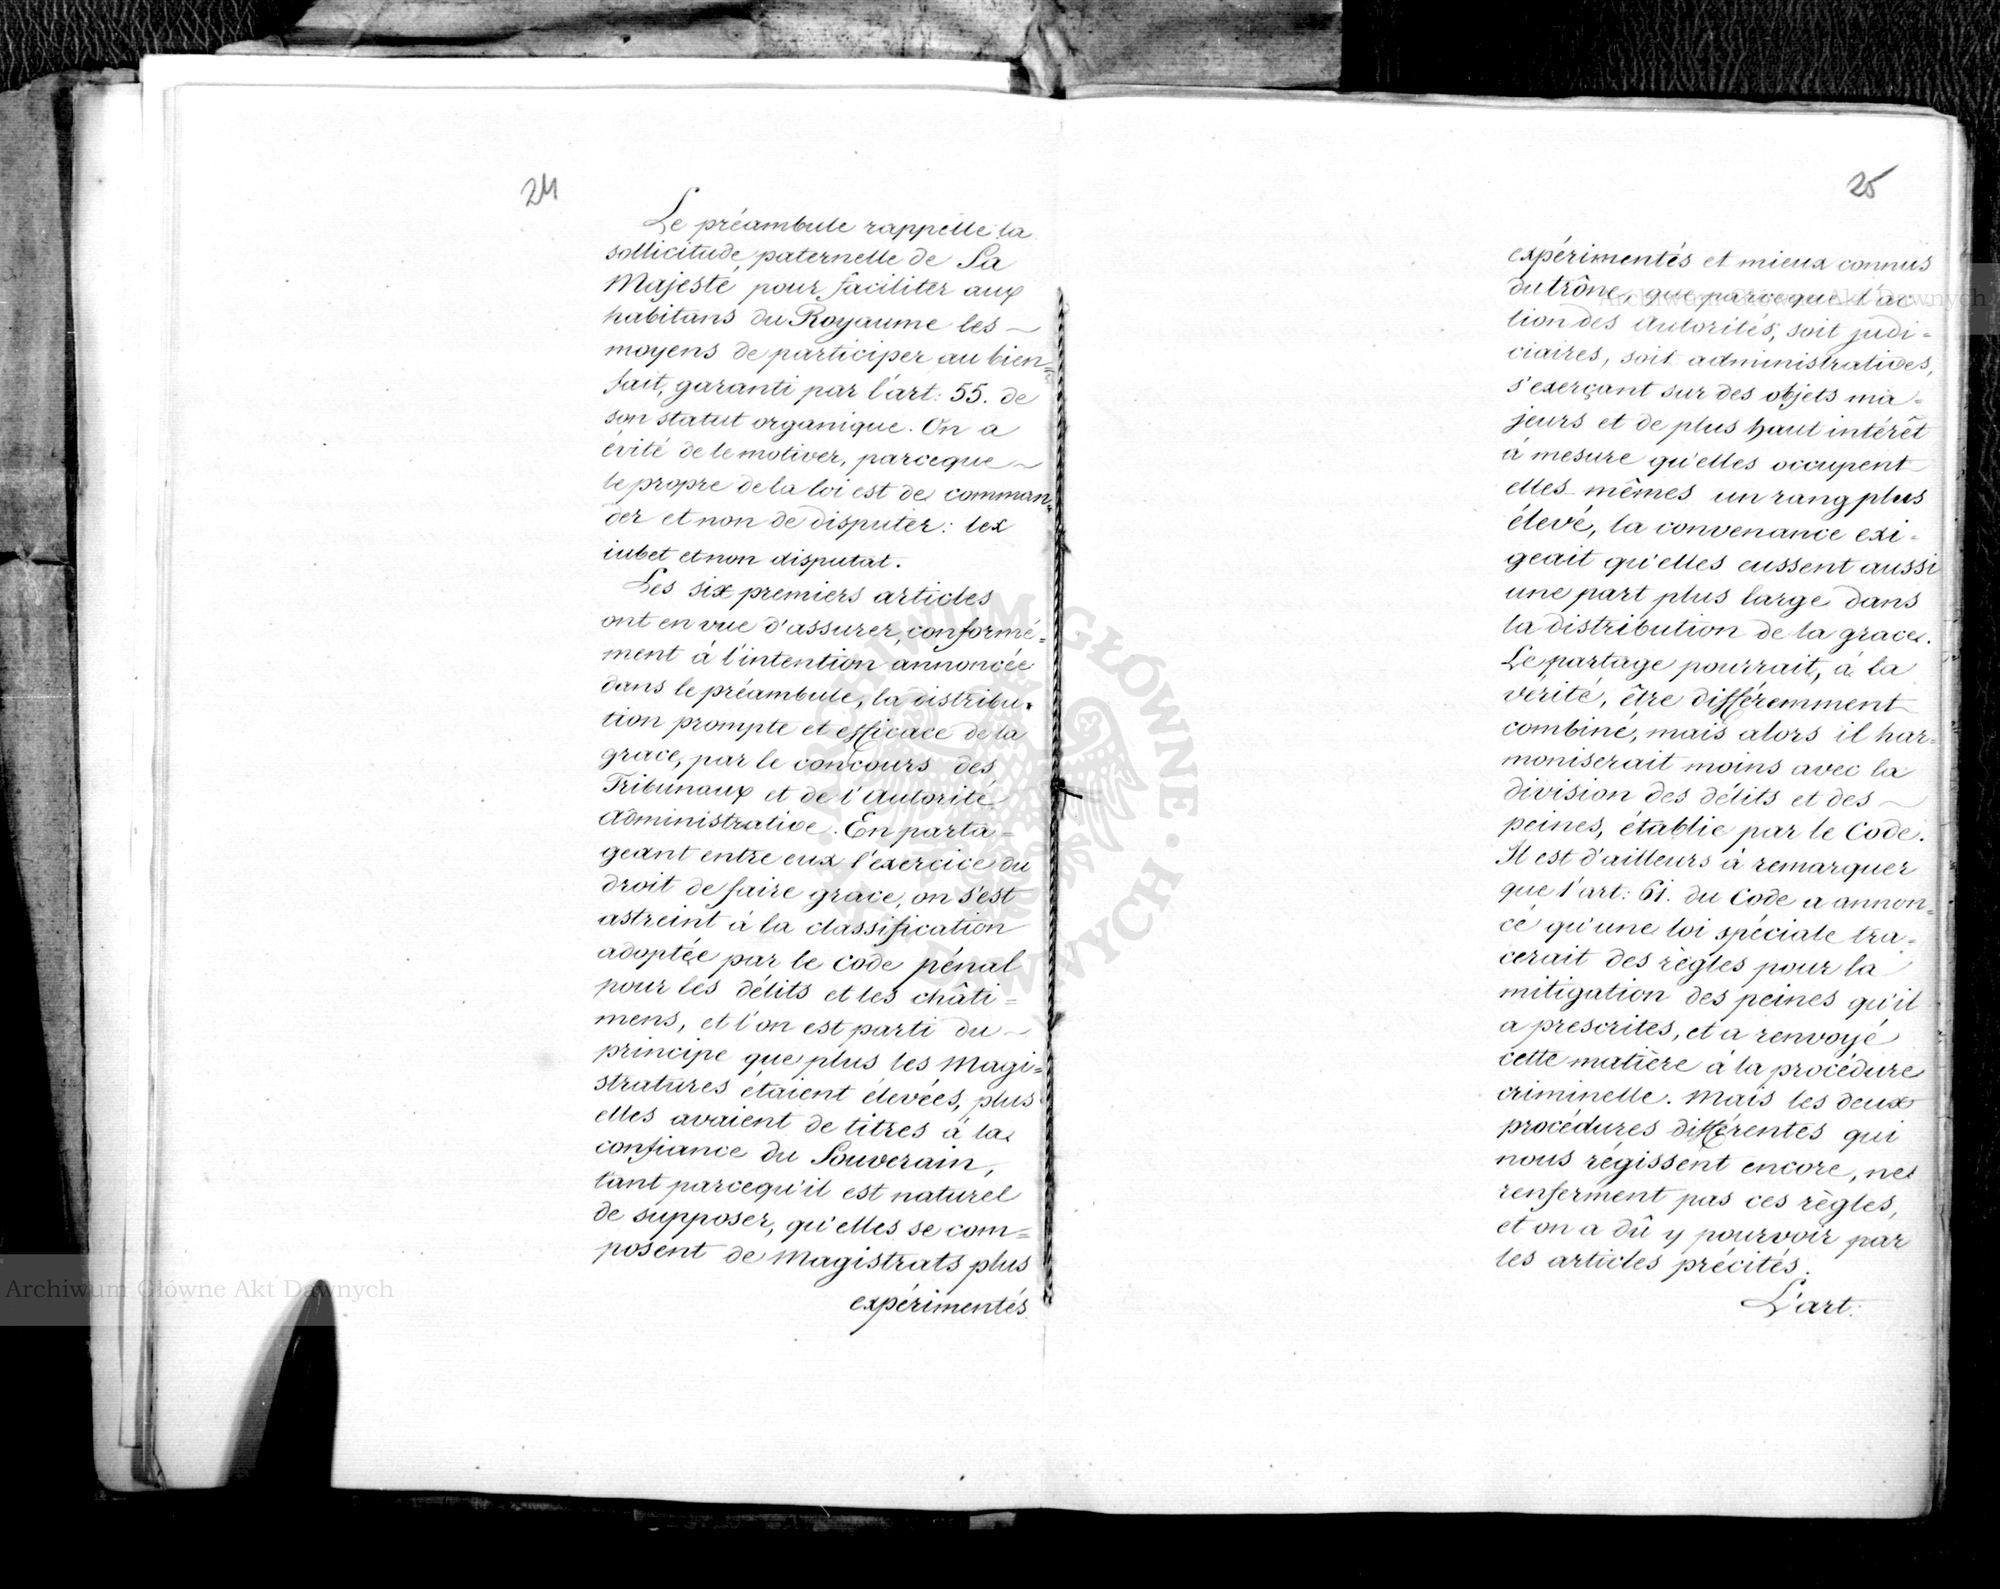 24
Le préambule rappelle la
sollicitude paternelle de Sa
Majesté pour faciliter aux
habitans du Royaume les
moyens de participer au bien=
fait, garanti par l'art: 55. de
son statut organique. On a
évité de le motiver, parceque
le propre de la loi est de comman=
der et non de disputer: lex
iubet et non disputat.
Les six premiers articles
ont en vue d'assurer, conformé=
ment à l'intention annoncée
dans le préambule, la distribu=
tion prompte et efficace de la
grace, par le concours des
Tribunaux et de l'Autorité
administrative. En parta=
geant entre eux l'exercice du
droit de faire grace, on s'est
astreint à la classification
adoptée par le Code pénal
pour les délits et les châti=
mens, et l'on est parti du
principe que plus les Magi=
stratures étaient élevées, plus
elles avaient de titres à la
confiance du Souverain,
tant parcequ'il est naturel
de supposer, qu'elles se com=
posent de Magistrats plus
expérimentés
25
expérimentés et mieux connus
du trône, que parceque l'ac=
tion des Autorités, soit judi=
ciaires, soit administratives,
s'exerçant sur des objets ma=
jeurs et de plus haut intérêt
à mesure qu'elles occupent
elles-mêmes un rang plus
élevé, la convenance exi=
geait qu'elles eussent aussi
une part plus large dans
la distribution de la grace.
Le partage pourrait, à la
vérité, être différemment
combiné, mais alors il har=
moniserait moins avec la
division des délits et des
peines, établie par le Code.
Il est d'ailleurs à remarquer
que l'art: 61. du Code a annon=
cé qu'une loi spéciale tra=
cerait des règles pour la
mitigation des peines qu'il
a prescrites, et a renvoyé
cette matière à la procédure
criminelle. Mais les deux
procédures différentes qui
nous régissent encore, ne
renferment pas ces règles,
et on a dû y pourvoir par
les articles précités.
L'art:
Archiwum Główne Akt Dawnych
Archiwum Główne Akt Dawnych
ARCHIWUM GŁÓWNE AKT DAWNYCH